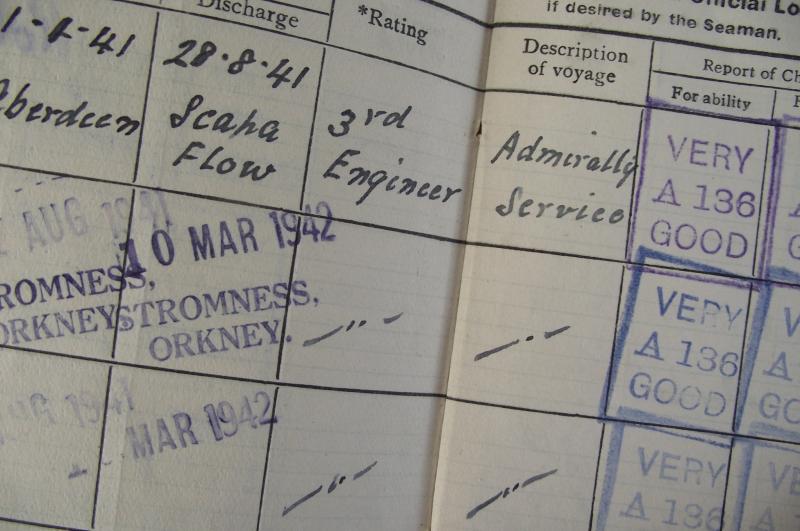 Discharge
*Rating
if desired by the Seaman.
Description
of voyage
Report of
For ability
1-1-41
28·8·41
Aberdeen
Scapa
Flow
3rd
Engineer
Admiralty
Service
VERY
A 136
GOOD
AUG 1941
10 MAR 1942
STROMNESS,
ORKNEY.
STROMNESS,
ORKNEY.
— " —
— " —
VERY
A 136
GOOD
AUG 1941
MAR 1942
— " —
— " —
VERY
A 136
VERY